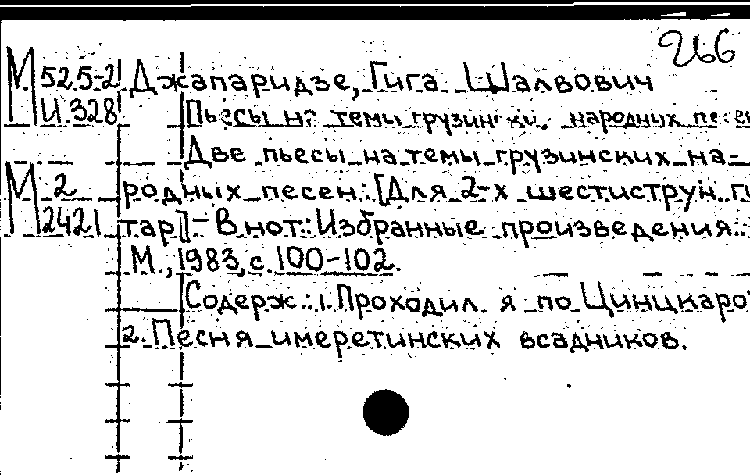 266
М 525-2 Джапаридзе, Гига Шалвович
И 328 Пьесы на темы грузинских народных
Две пьесы на темы грузинских на-
М 2 родных песен: [Для 2-х шестиструн.
2421 тар] - В нот.: Избранные произведения.
М., 1983, с. 100-102.
Содерж.: 1. Проходил я по Цинцкаро
2. Песня имеретинских всадников.